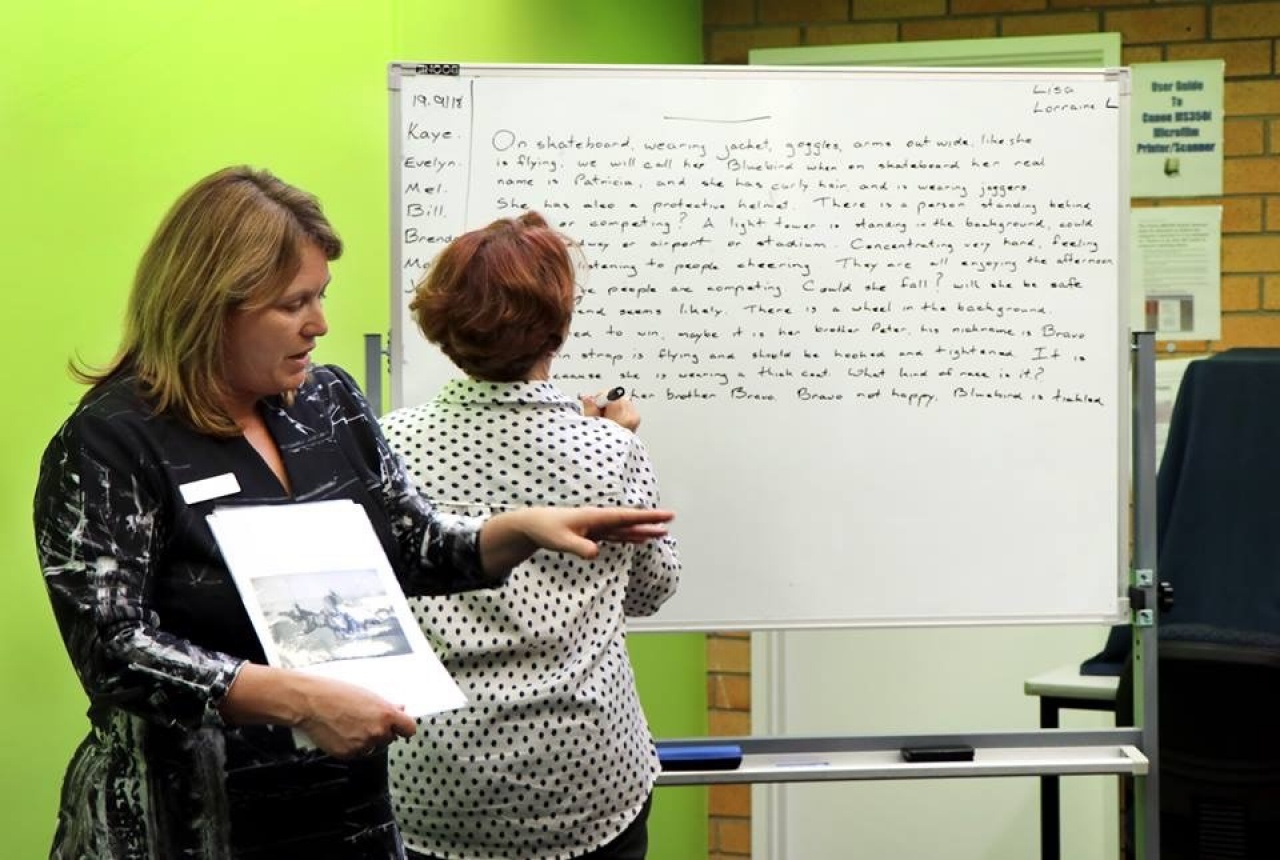 19.9/18
Kaye.
Evelyn.
Mel.
Bill.
Lisa
Lorraine L
On skateboard, wearing jacket, goggles, arms out wide, like she
is flying: we will call her Bluebird when on skateboard her real
name is Patricia, and she has curly hair, and is wearing joggers
She has also a protective helmet. There is a person standing behind
or competing? A light tower is standing in the background, could
or airport or stadium. Concentrating very hard, feeling
listening to people cheering They are all enjoying the afternoon
people are competing. Could she fall? will she be safe
seems likely. There is a wheel in the background.
to win, maybe it is her brother Peter, his nickname is Bravo
strap is flying and should be hooked and tightened It is
she is wearing a thick coat. What kind of race is it?
her brother Bravo. Bravo not happy, Bluebird is tickled
User Guide
To
Canon MS350i
Microfilm
Printer/Scanner